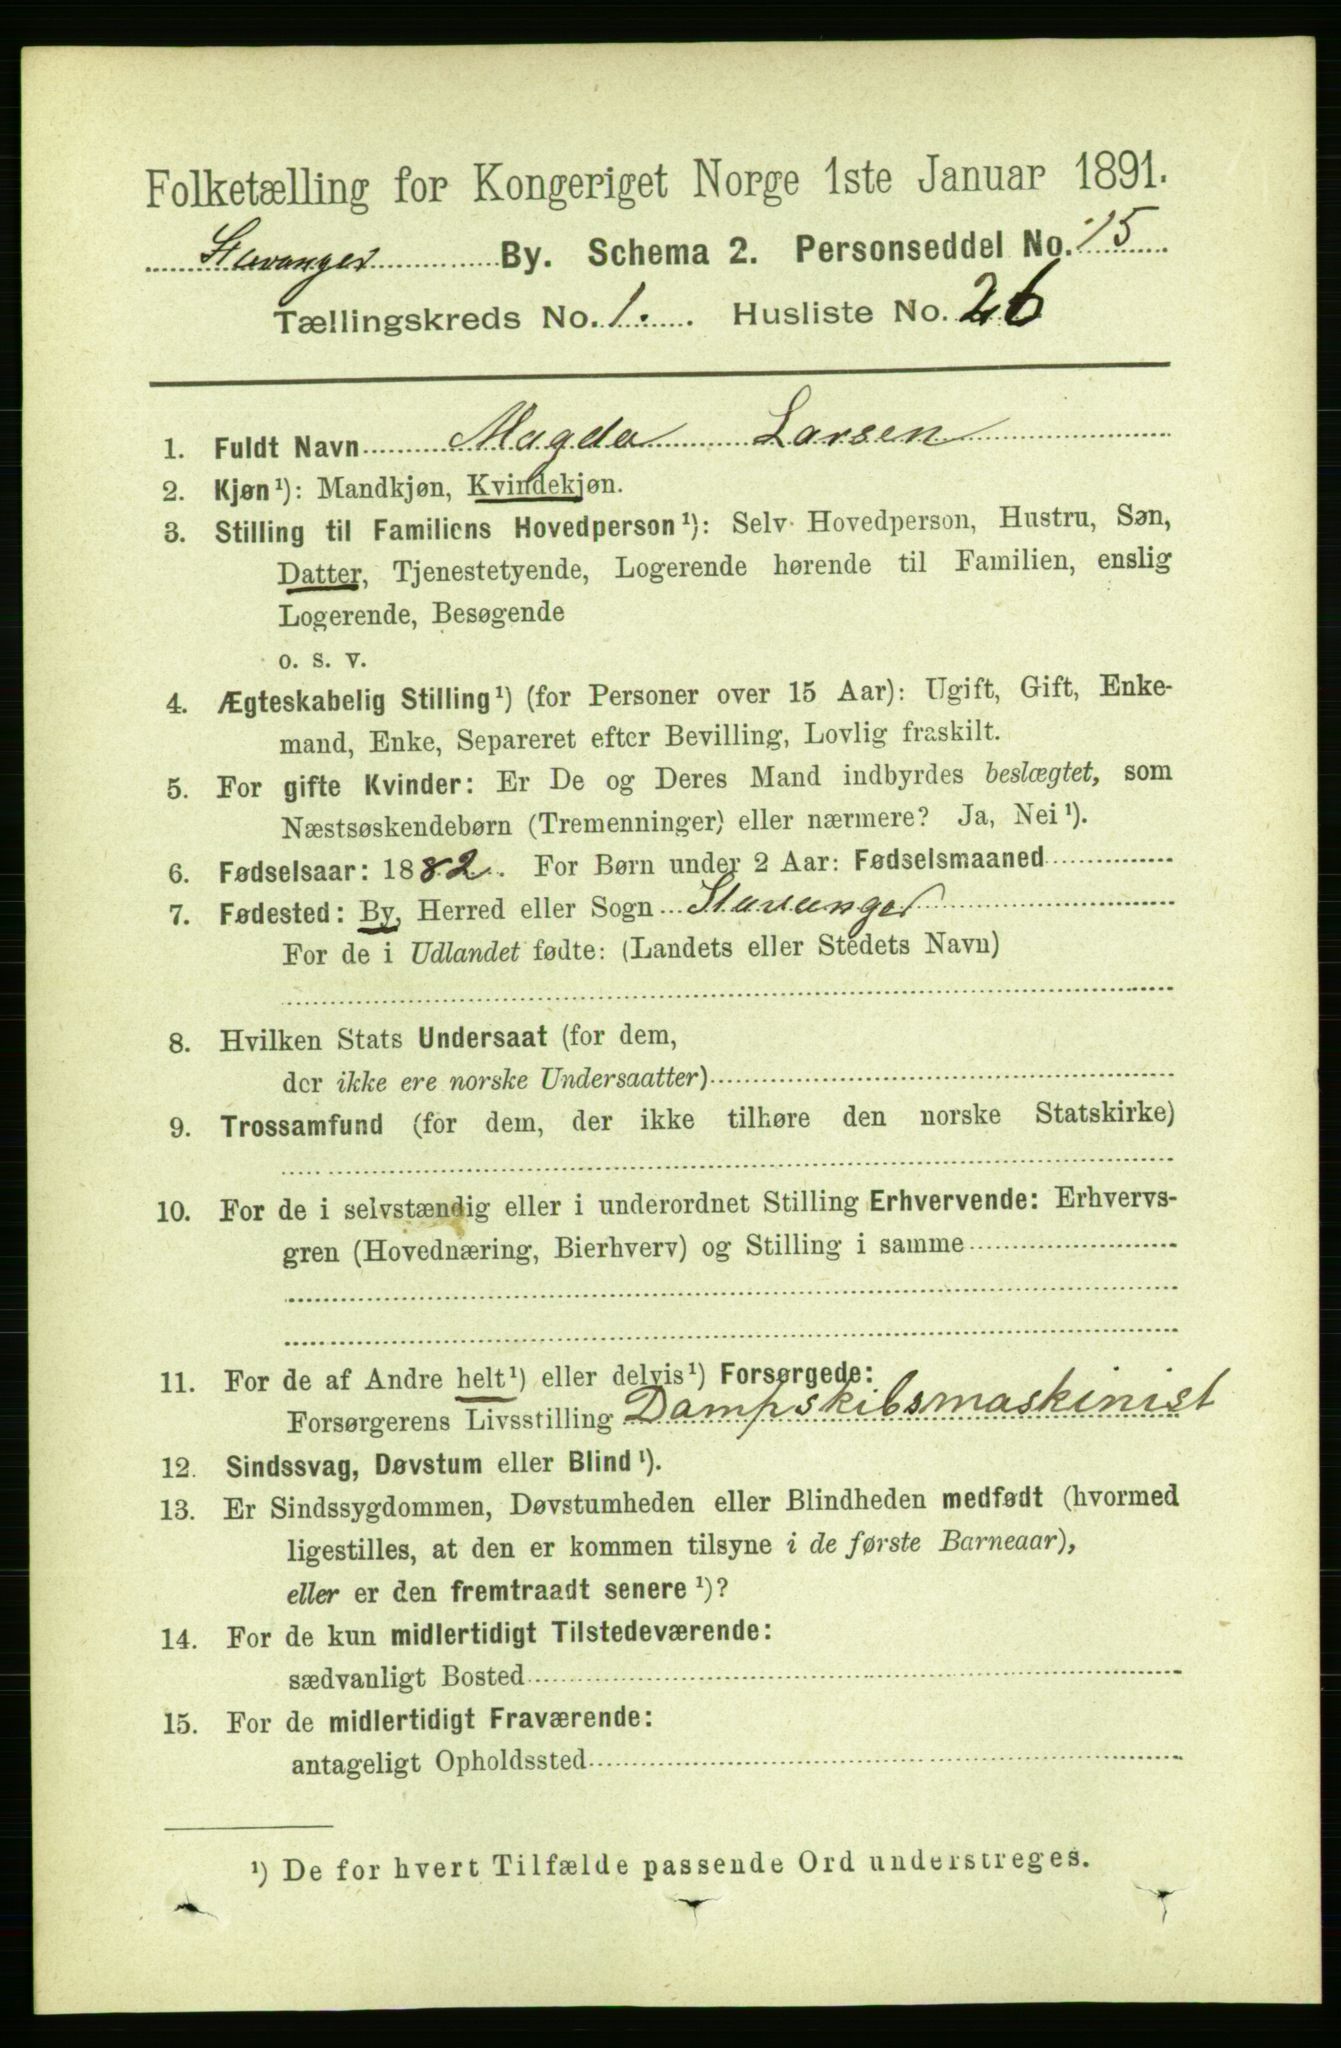 Folketælling for Kongeriget Norge 1ste Januar 1891.
Stavanger By. Schema 2. Personseddel No. 15
Tællingskreds No. 1. Husliste No. 26
1. Fuldt Navn Magda Larsen
2. Kjøn¹): Mandkjøn, Kvindekjøn.
3. Stilling til Familiens Hovedperson¹): Selv Hovedperson, Hustru, Søn,
Datter, Tjenestetyende, Logerende hørende til Familien, enslig
Logerende, Besøgende
o. s. v.
4. Ægteskabelig Stilling¹) (for Personer over 15 Aar): Ugift, Gift, Enke-
mand, Enke, Separeret efter Bevilling, Lovlig fraskilt.
5. For gifte Kvinder: Er De og Deres Mand indbyrdes beslægtet, som
Næstsøskendebørn (Tremenninger) eller nærmere? Ja, Nei¹).
6. Fødselsaar: 1882. For Børn under 2 Aar: Fødselsmaaned
7. Fødested: By, Herred eller Sogn Stavanger
For de i Udlandet fødte: (Landets eller Stedets Navn)
8. Hvilken Stats Undersaat (for dem,
der ikke ere norske Undersaatter)
9. Trossamfund (for dem, der ikke tilhøre den norske Statskirke)
10. For de i selvstændig eller i underordnet Stilling Erhvervende: Erhvervs-
gren (Hovednæring, Bierhverv) og Stilling i samme
11. For de af Andre helt¹) eller delvis¹) Forsørgede:
Forsørgerens Livsstilling Dampskibsmaskinist
12. Sindssvag, Døvstum eller Blind¹).
13. Er Sindssygdommen, Døvstumheden eller Blindheden medfødt (hvormed
ligestilles, at den er kommen tilsyne i de første Barneaar),
eller er den fremtraadt senere¹)?
14. For de kun midlertidigt Tilstedeværende:
sædvanligt Bosted
15. For de midlertidigt Fraværende:
antageligt Opholdssted
¹) De for hvert Tilfælde passende Ord understreges.